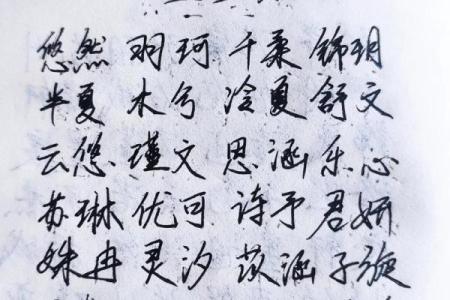 悠然 羽珂 千柔 锦玥
半夏 木兮 冷夏 舒文
云悠 瑾文 思涵 乐心
苏琳 优可 诗予 君妍
姝冉 灵汐 苡涵 子漩